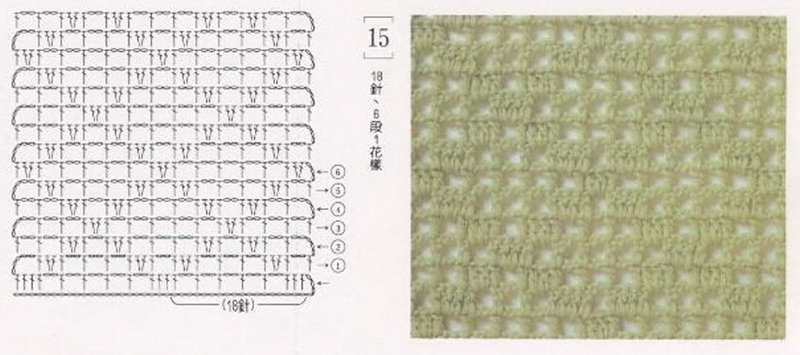 15
18針、6段1花樣
6
5
4
3
2
1
(18針)